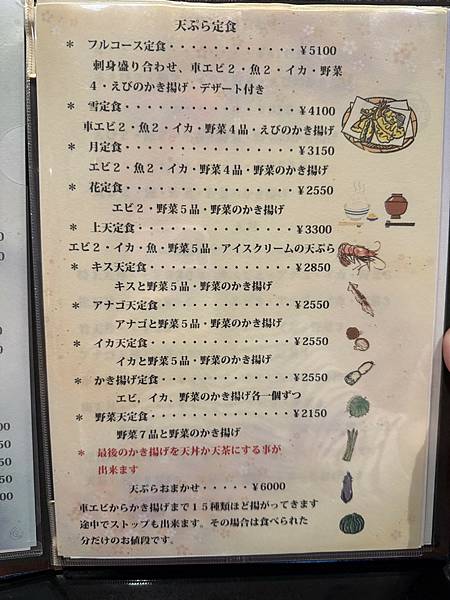 天ぷら定食
* フルコース定食・・・・・・・・・・・・¥5100
刺身盛り合わせ、車エビ2・魚2・イカ・野菜
4・えびのかき揚げ・デザート付き
* 雪定食・・・・・・・・・・・・・・・・¥4100
車エビ2・魚2・イカ・野菜4品・えびのかき揚げ
* 月定食・・・・・・・・・・・・・・・・¥3150
エビ2・魚2・イカ・野菜4品・野菜のかき揚げ
* 花定食・・・・・・・・・・・・・・・・¥2550
エビ2・野菜5品・野菜のかき揚げ
* 上天定食・・・・・・・・・・・・・・・¥3300
エビ2・イカ・魚・野菜5品・アイスクリームの天ぷら
* キス天定食・・・・・・・・・・・・・・¥2850
キスと野菜5品・野菜のかき揚げ
* アナゴ天定食・・・・・・・・・・・・・¥2550
アナゴと野菜5品・野菜のかき揚げ
* イカ天定食・・・・・・・・・・・・・・¥2550
イカと野菜5品・野菜のかき揚げ
* かき揚げ定食・・・・・・・・・・・・・¥2550
エビ、イカ、野菜のかき揚げ各一個ずつ
* 野菜天定食・・・・・・・・・・・・・・¥2150
野菜7品と野菜のかき揚げ
* 最後のかき揚げを天丼か天茶にする事が
出来ます
天ぷらおまかせ・・・・・¥6000
車エビからかき揚げまで15種類ほど揚がってきます
途中でストップも出来ます。その場合は食べられた
分だけのお値段です。